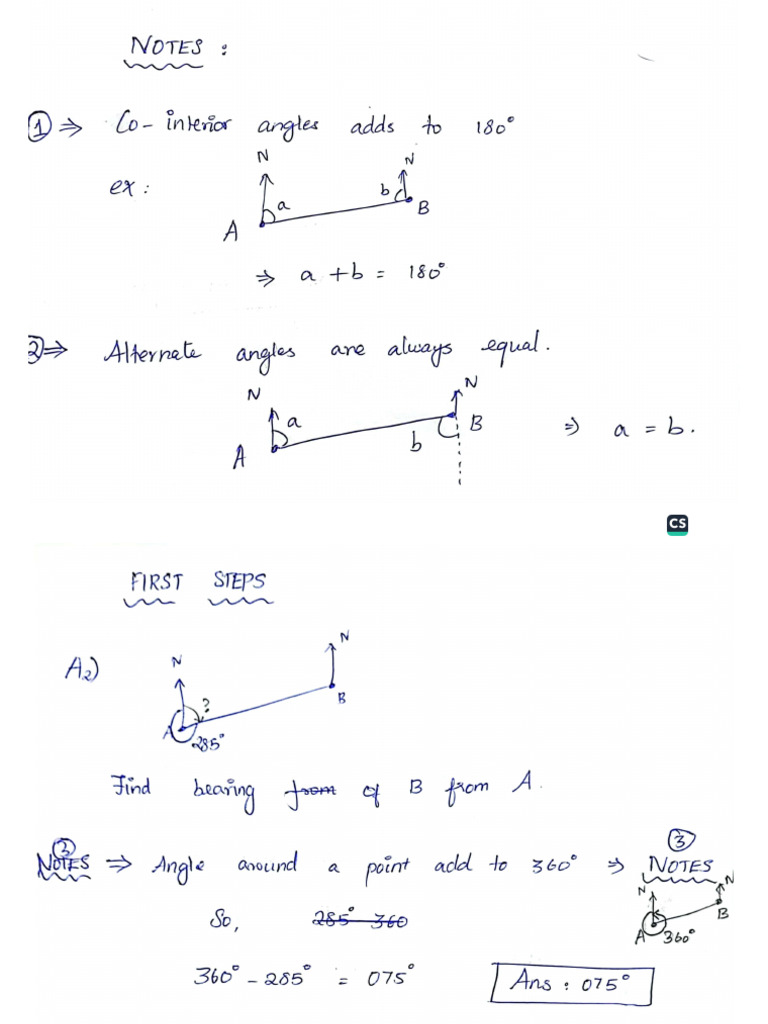 NOTES :
① ⇒ Co-interior angles adds to 180°
ex :
N
N
a
b
A
B
⇒ a + b = 180°
② ⇒ Alternate angles are always equal.
N
N
a
b
A
B
⇒ a = b.
CS
FIRST STEPS
A2)
N
N
?
A
B
285°
Find bearing from of B from A.
③ ③
NOTES ⇒ Angle around a point add to 360° ⇒ NOTES
N
N
A
B
360°
So, 285° 360
360° - 285° = 075°
Ans : 075°